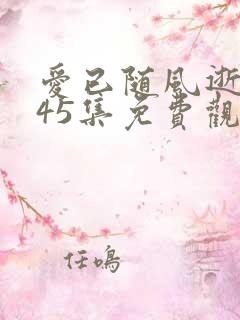 愛已随風逝
45集免費觀
任鳴